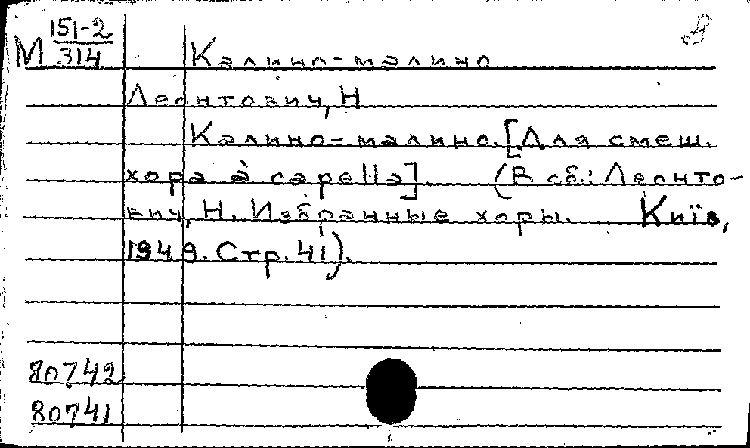 М 151-2/314 Калино-малино
Леонтович, Н
Калино-малино. [Для смеш.
хора à capella]. (В сб.: Леонто-
вич, Н. Избранные хоры. Київ,
1949. Стр. 41).
80742
80741